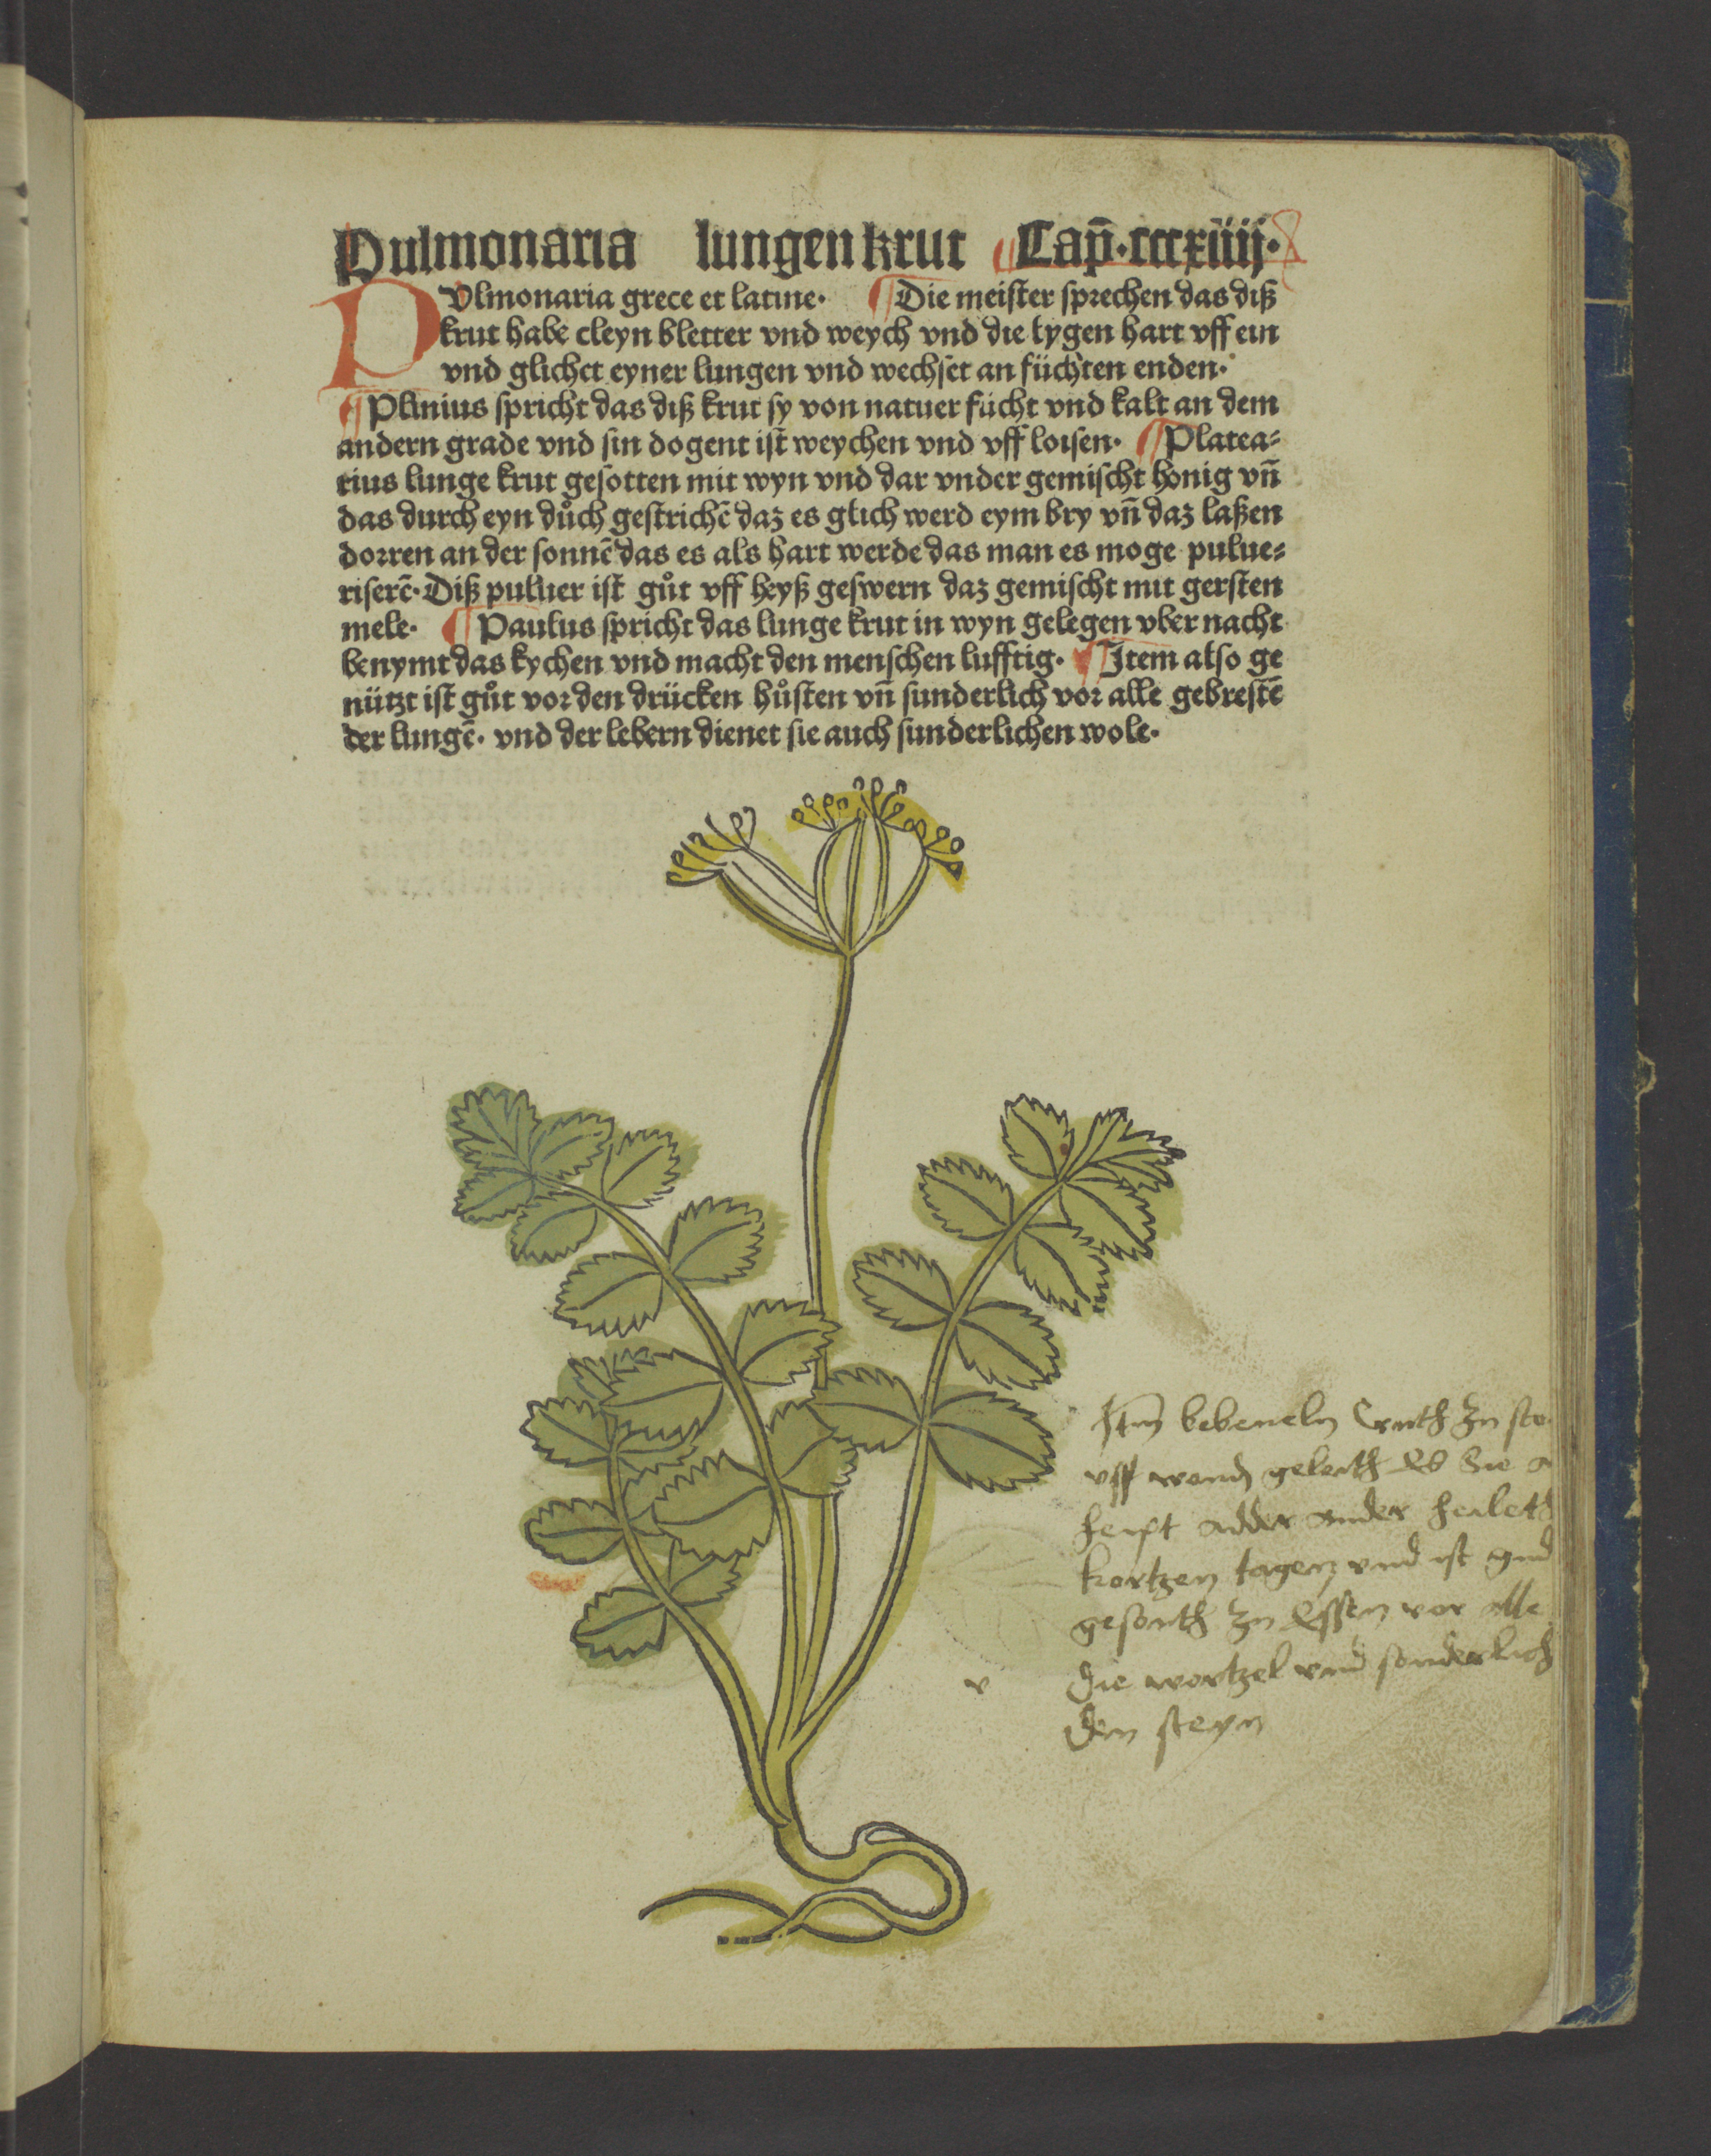 Pulmonaria lungen krut Cap̄.cccxiiij.
PVlmonaria grece et latine. ¶ Die meister sprechen das diß
krut habe cleyn bletter vnd weych vnd die lygen hart vff ein
vnd glichet eyner lungen vnd wechset an füchten enden.
¶ Plinius spricht das diß krut sy von natuer fücht vnd kalt an dem
andern grade vnd sin dogent ist weychen vnd vff loisen. ¶ Platea⸗
rius lunge krut gesotten mit wyn vnd dar vnder gemischt honig vn̄
das durch eyn důch gestrichē daz es glich werd eym bry vn̄ daz laßen
dorren an der sonnē das es als hart werde das man es moge pulue⸗
riserē. Diß puluer ist gůt vff heyß geswern daz gemischt mit gersten
mele. ¶ Paulus spricht das lunge krut in wyn gelegen vber nacht
benymt das kychen vnd macht den menschen lufftig. ¶ Item also ge
nützt ist gůt vor den drücken hůsten vn̄ sunderlich vor alle gebrestē
der lungē. vnd der lebern dienet sie auch sunderlichen wole.
Itm̄ bebeneln Cruth zu sto
vff wond geleith Es Sie
heipt adder ander heileth
kortzen tagen vnd ist gud
gesonth zu Essen vor alle
v die wortzel vnd sonderlich
den steyn